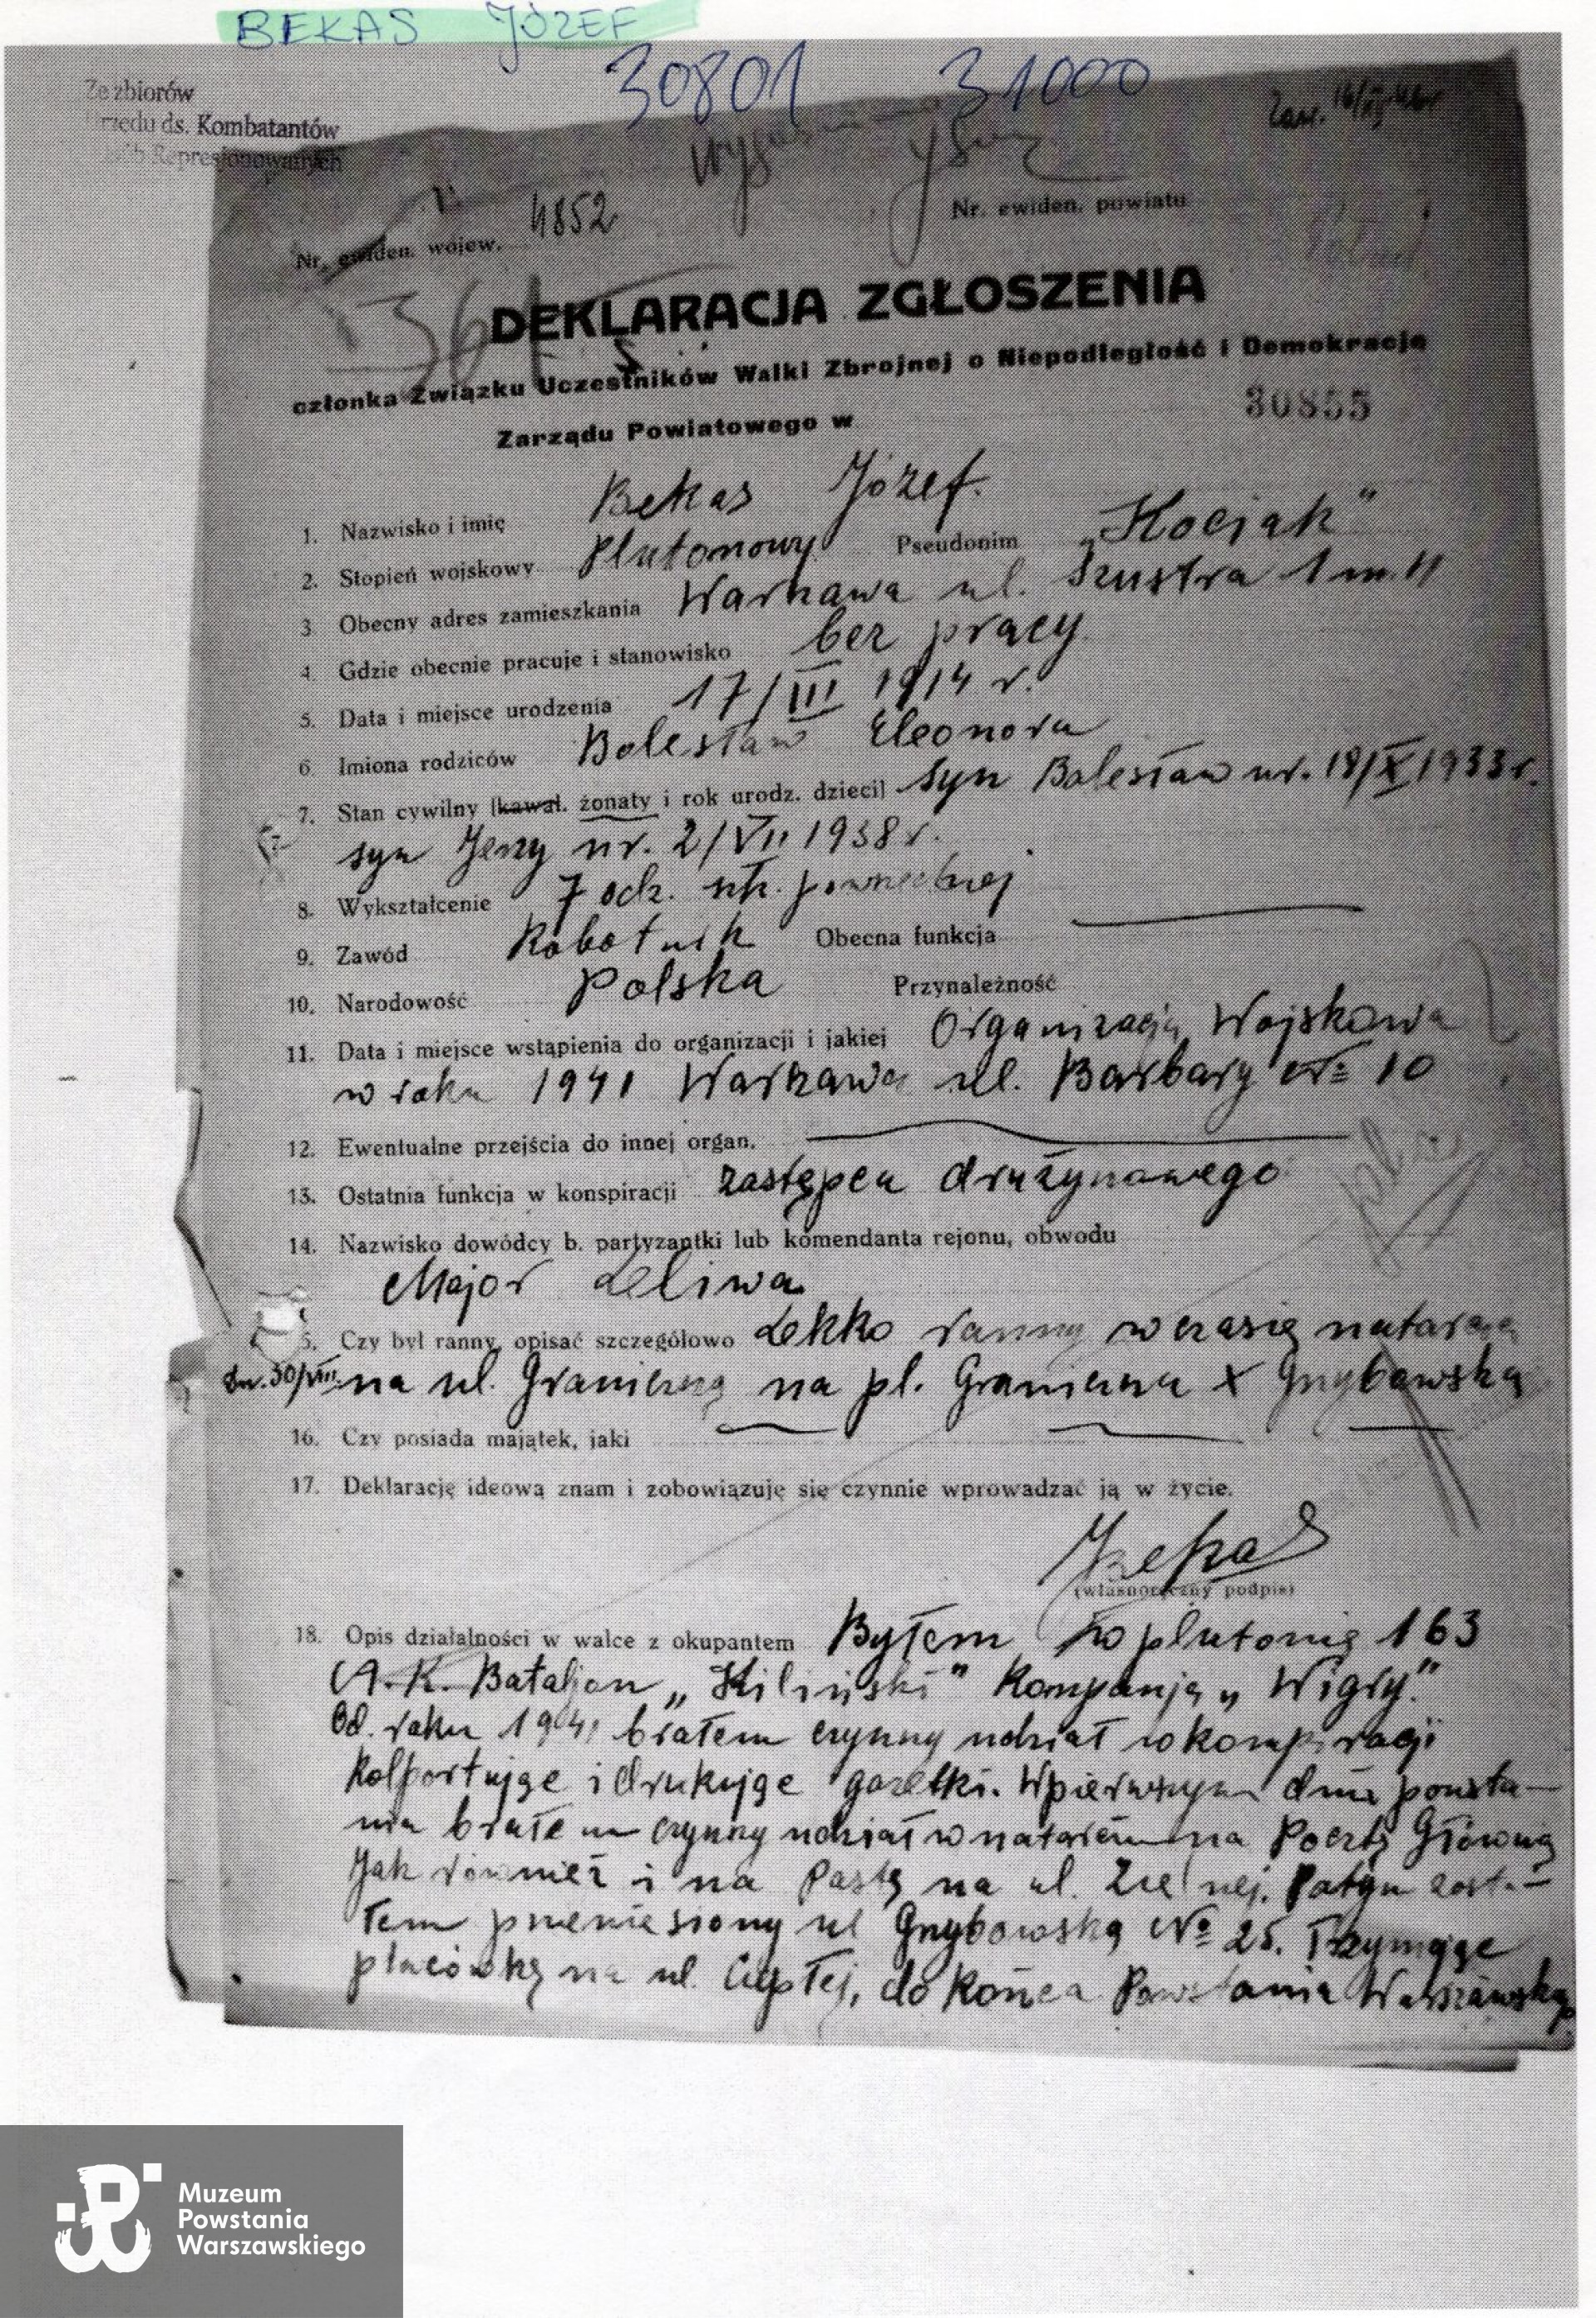 BEKAS JÓZEF
30801 31000
Ze zbiorów
Urzędu ds. Kombatantów
Represjonowanych
4852
Nr. ewiden. powiatu
Nr. ewiden. wojew.
DEKLARACJA ZGŁOSZENIA
członka Związku Uczestników Walki Zbrojnej o Niepodległość i Demokrację
30855
Zarządu Powiatowego w
1. Nazwisko i imię Bekas Józef.
2. Stopień wojskowy Plutonowy Pseudonim „Kociak"
3. Obecny adres zamieszkania Warszawa ul. Szustra 1 m. 11
4. Gdzie obecnie pracuje i stanowisko bez pracy
5. Data i miejsce urodzenia 17/III 1914 r.
6. Imiona rodziców Bolesław Eleonora
7. Stan cywilny [kawal. żonaty i rok urodz. dzieci] syn Bolesław ur. 18/X 1933 r.
syn Jerzy ur. 2/VII 1938 r.
8. Wykształcenie 7 odz. szk. powszechnej
9. Zawód Robotnik Obecna funkcja
10. Narodowość Polska Przynależność
11. Data i miejsce wstąpienia do organizacji i jakiej Organizacja Wojskowa
w roku 1941 Warszawa ul. Barbary № 10
12. Ewentualne przejścia do innej organ.
13. Ostatnia funkcja w konspiracji zastępca drużynowego
14. Nazwisko dowódcy b. partyzantki lub komendanta rejonu, obwodu
Major Leliwa
5. Czy był ranny, opisać szczegółowo Lekko ranny w czasie natarcia
dn. 30/VIII na ul. Graniczną na pl. Graniczna X Grzybowska
16. Czy posiada majątek, jaki
17. Deklarację ideową znam i zobowiązuję się czynnie wprowadzać ją w życie.
JBekas
(własnoręczny podpis)
18. Opis działalności w walce z okupantem Byłem w plutonie 163
A.K. Bataljon „Kiliński" Kompanja „Wigry."
Od roku 1941 brałem czynny udział w konspiracji
Kolportując i drukując gazetki. W pierwszym dniu powsta-
nia brałem czynny udział w natarciu na Pocztę Główną
Jak również i na Pastę na ul. Zielnej. Potym zosta-
łem przeniesiony ul Grzybowską № 25. Trzymając
placówkę na ul. Ciepłej, do końca Powstania Warszawskiego
Muzeum
Powstania
Warszawskiego